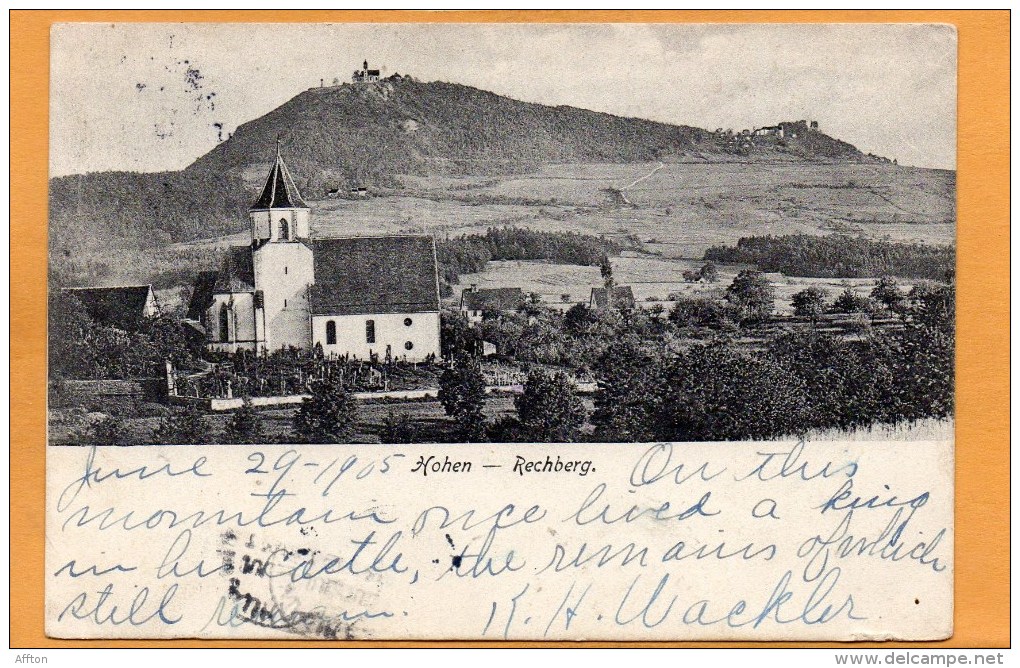 June 29-1905 Hohen — Rechberg. On this
mountain once lived a king
in his castle, the remains of which
still remain. K. H. Wackler
Affton
www.delcampe.net